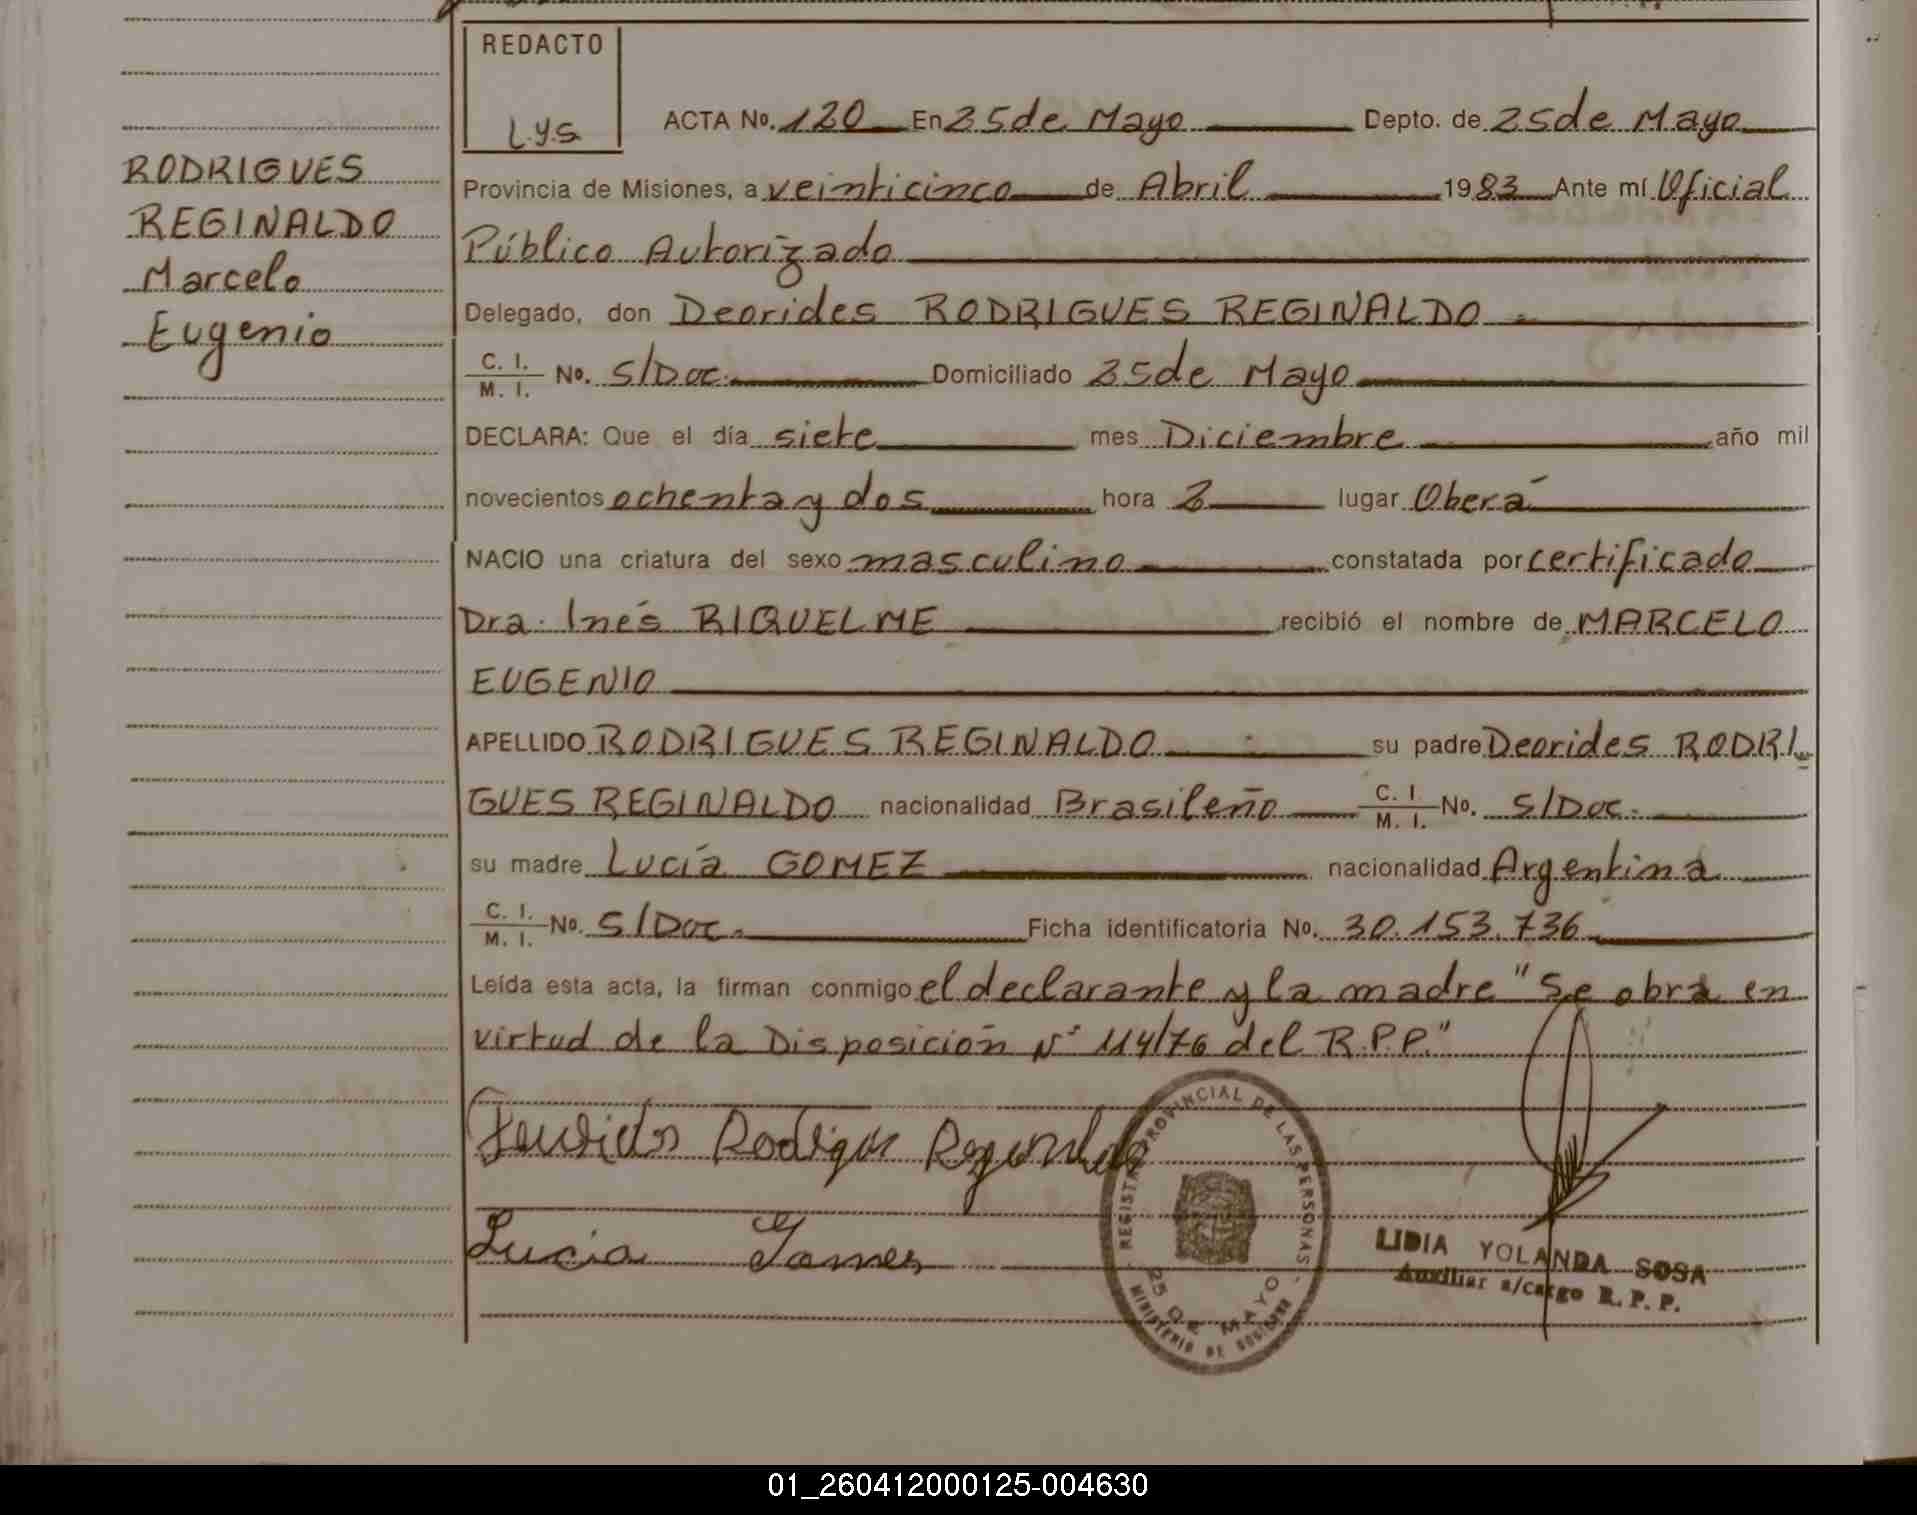 REDACTO
L.Y.S
ACTA No. 120 En 25 de Mayo Depto. de 25 de Mayo
RODRIGUES
REGINALDO
Marcelo
Eugenio
Provincia de Misiones, a veinticinco de Abril 1983 Ante mí Oficial
Público Autorizado
Delegado, don Deorides RODRIGUES REGINALDO
C. I.
M. I. No. S/Doc. Domiciliado 25 de Mayo
DECLARA: Que el día siete mes Diciembre año mil
novecientos ochenta y dos hora 2 lugar Oberá
NACIO una criatura del sexo masculino constatada por certificado
Dra. Inés RIQUELME recibió el nombre de MARCELO
EUGENIO
APELLIDO RODRIGUES REGINALDO su padre Deorides RODRI
GUES REGINALDO nacionalidad Brasileño C. I. M. I. No. S/Doc.
su madre Lucía GOMEZ nacionalidad Argentina
C. I.
M. I. No. S/Doc. Ficha identificatoria No. 30.153.736
Leída esta acta, la firman conmigo el declarante y la madre "Se obra en
virtud de la Disposición N° 114/76 del R.P.P."
Rodrigues
Lucia Gomes
REGISTRO PROVINCIAL DE LAS PERSONAS
25 DE MAYO
MINISTERIO DE GOBIERNO
LIDIA YOLANDA SOSA
Auxiliar a/cargo R. P. P.
01_260412000125-004630